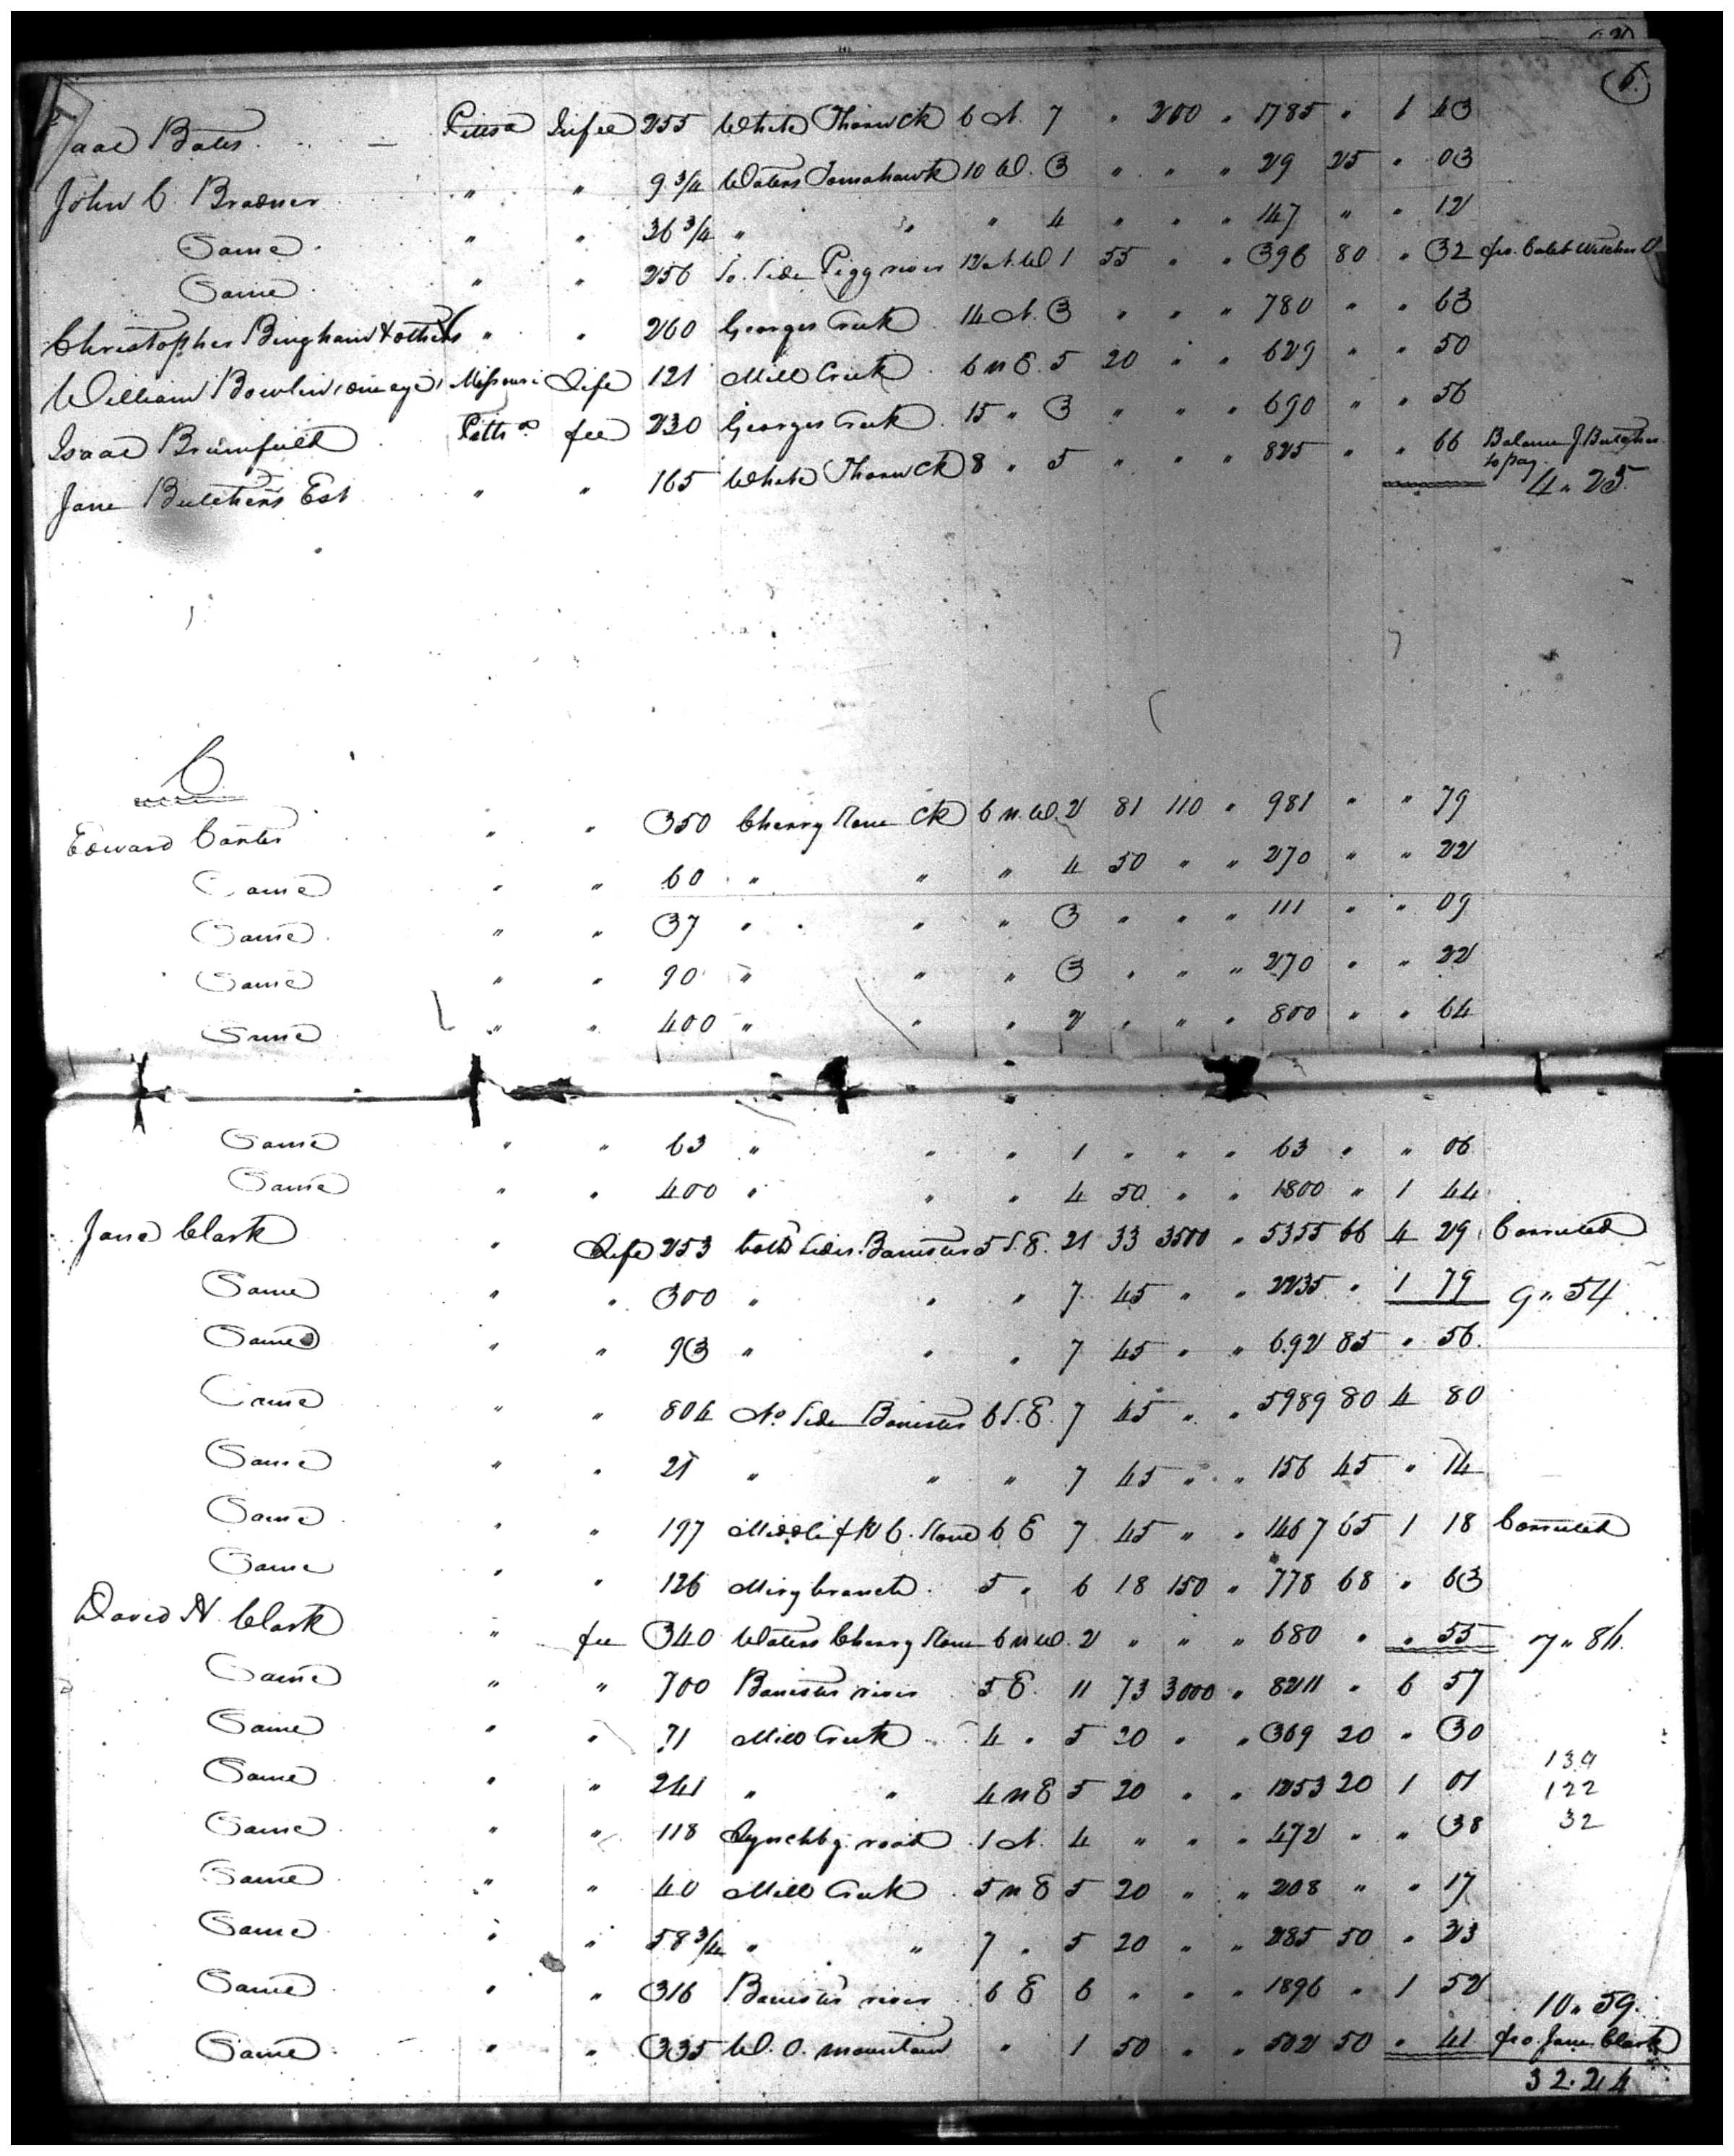 6.
Isaac Bates Pittsa In fee 255 White Thorn Ck 6 N. 7 " 200 " 1785 " 1 43
John C. Bradner " " 9 3/4 Waters Tomahawk 10 W. 3 " " " 29 25 " 03
Same " " 36 3/4 " " " 4 " " " 147 " " 12
Same " " 256 So. Side Pigg river 12 N.W 1 55 " " 396 80 " 32 fro. Caleb Witcher
Christopher Bingham & others " " 260 Georges Creek 14 N. 3 " " " 780 " " 63
William Bowlin Missouri Life 121 Mill Creek 6 N E. 5 20 " " 629 " " 50
Isaac Brumfield Pittsa fee 230 Georges Creek 15 " 3 " " " 690 " " 56
Jane Butchers Est " " 165 White Thorn Ck 8 " 5 " " " 825 " " 66 Balance J. Butcher
to pay
4 " 25
C
Edward Carter " " 350 Cherry Stone Ck 6 N.W. 2 81 110 " 981 " " 79
Same " " 60 " " " 4 50 " " 270 " " 22
Same " " 37 " " " 3 " " " 111 " " 09
Same " " 90 " " " 3 " " " 270 " " 22
Same " " 400 " " " 2 " " " 800 " " 64
Same " " 63 " " " 1 " " " 63 " " 06
Same " " 400 " " " 4 50 " " 1800 " 1 44
Jane Clark " Life 253 both Sides Banister 5 S.E. 21 33 3500 " 5355 66 4 29 Corrected
Same " " 300 " " " 7 45 " " 2235 " 1 79 9 " 54
Same " " 93 " " " 7 45 " " 692 85 " 56
Same " " 804 No Side Banister 6 S.E. 7 45 " " 5989 80 4 80
Same " " 21 " " " 7 45 " " 156 45 " 14
Same " " 197 Middle fk C. Stone 6 E 7 45 " " 1467 65 1 18 Corrected
Same " " 126 Miry branch 5 " 6 18 150 " 778 68 " 63
David H. Clark " fee 340 Waters Cherry Stone 6 N W. 2 " " " 680 " " 55 7 " 84
Same " " 700 Banister river 5 E. 11 73 3000 " 8211 " 6 57
Same " " 71 Mill Creek 4 " 5 20 " " 369 20 " 30
Same " " 241 " " 4 N E 5 20 " " 1253 20 1 01
139
122
32
Same " " 118 Lynchbg. road 1 N. 4 " " " 472 " " 38
Same " " 40 Mill Creek 5 N E 5 20 " " 208 " " 17
Same " " 58 3/4 " " 7 " 5 20 " " 285 50 " 23
Same " " 316 Banister river 6 E 6 " " " 1896 " 1 52 10 " 59
Same " " 335 W. O. mountain " 1 50 " " 502 50 " 41 fro Jane Clark
32.24